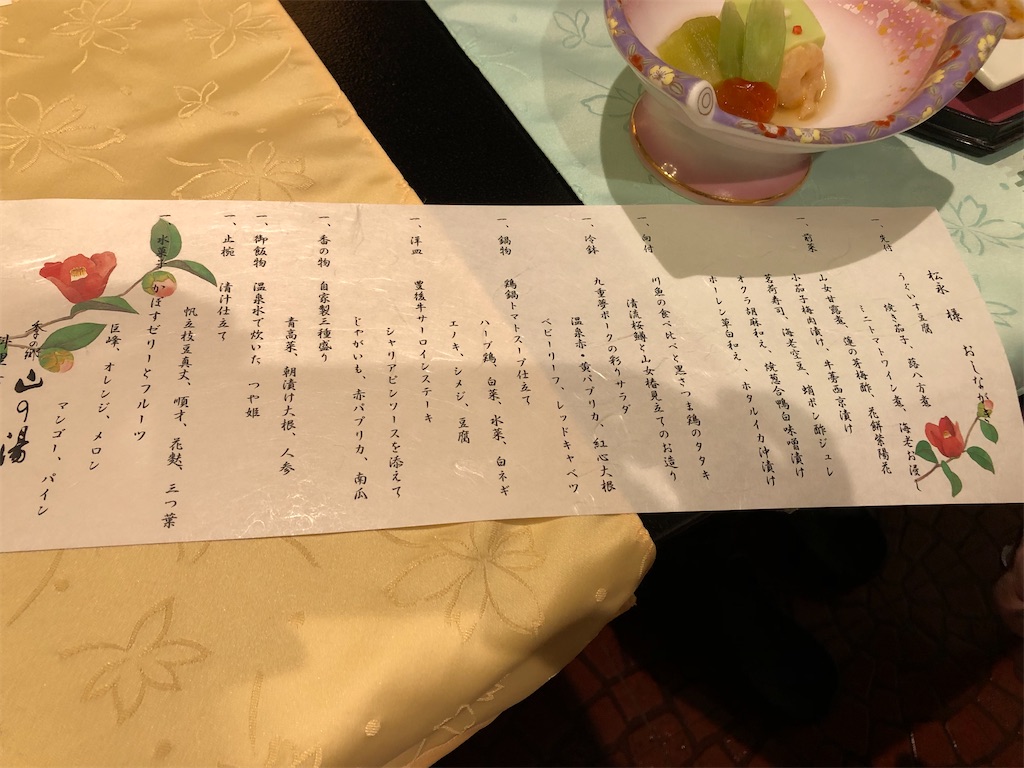 おしながき
松永 様
一、先付
うぐいす豆腐
焼き茄子、蕗八方煮
ミニトマトワイン煮、海老お浸し
一、前菜
山女甘露煮、蓮の芽梅酢、花餅紫陽花
小茄子梅肉漬け、牛蒡西京漬け
茗荷寿司、海老空豆、蛸ポン酢ジュレ
オクラ胡麻和え、燻葱合鴨白味噌漬け
ホーレン草白和え、ホタルイカ沖漬け
一、向付
川魚の食べ比べと黒さつま鶏のタタキ
清流桜鱒と山女椿見立てのお造り
一、冷鉢
九重夢ポークの彩りサラダ
温泉赤・黄パプリカ、紅心大根
ベビーリーフ、レッドキャベツ
一、鍋物
鶏鍋トマトスープ仕立て
ハーブ鶏、白菜、水菜、白ネギ
エノキ、シメジ、豆腐
一、洋皿
豊後牛サーロインステーキ
シャリアピンソースを添えて
じゃがいも、赤パプリカ、南瓜
一、香の物
自家製三種盛り
青高菜、朝漬け大根、人参
一、御飯物
温泉水で炊いた つや姫
一、止椀
清汁仕立て
帆立枝豆真丈、順才、花麩、三つ葉
一、水菓子
かぼすゼリーとフルーツ
巨峰、オレンジ、メロン
マンゴー、パイン
季の郷
山の湯